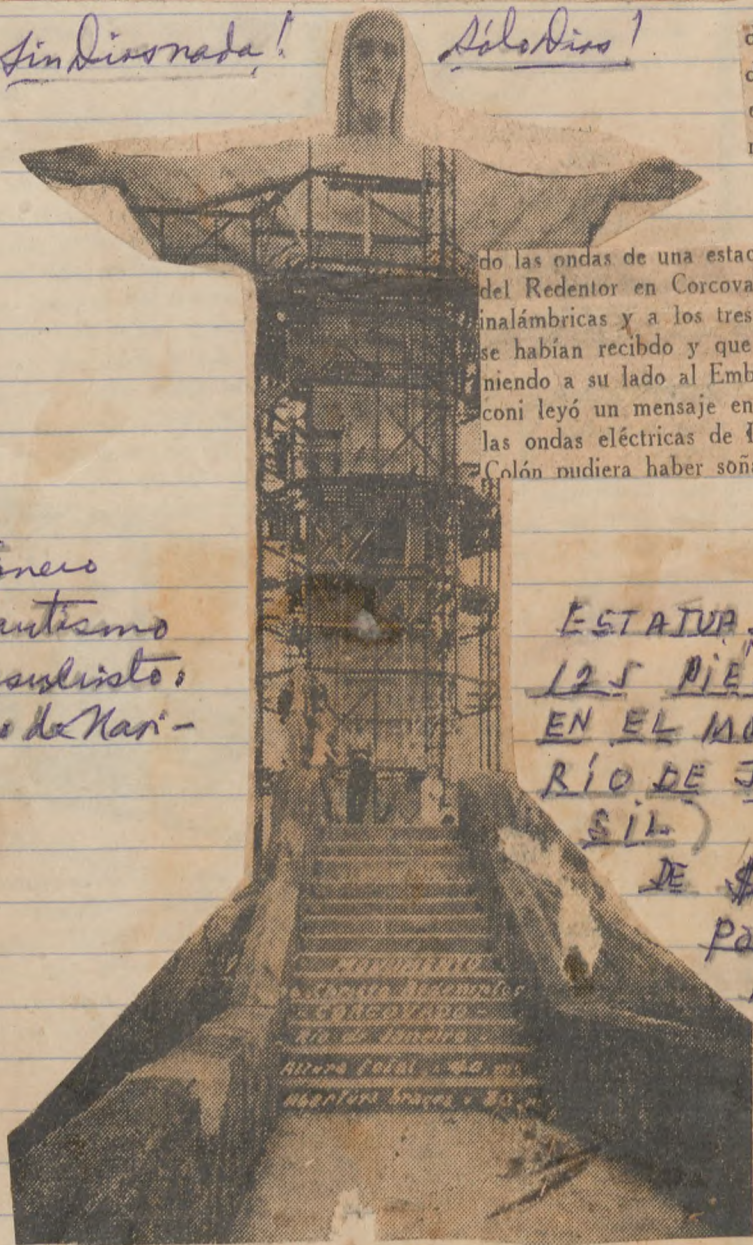 Sin Dios nada! Sólo Dios!
do las ondas de una estac
del Redentor en Corcova
inalámbricas y a los tres
se habían recibdo y que
niendo a su lado al Emb
coni leyó un mensaje en
las ondas eléctricas de
Colón pudiera haber soñ
nero
autismo
sucristo:
o de Nari-
ESTATUA
125 PIE
EN EL MO
RÍO DE J
SIL)
DE $
Pa
MONUMENTO
a Christo Redemptor
- CORCOVADO -
Rio de Janeiro
Altura total : 40 m
Abertura braços :